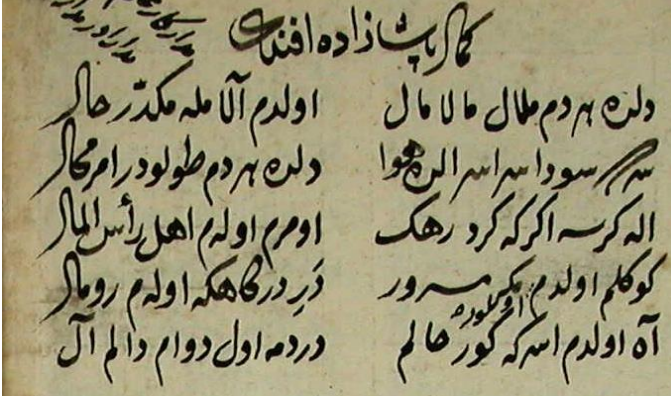 كمال پاشا زاده افندی
دلده هر دم ملال مالا مال اولدم آلامله مكدّر حال
سودا سر اسر الده هوا دلده هر دم طولودر امر محال
اله كرسه اكر كه كرد رهك اومرم اوله م اهل رأس المال
كوكلم اولدم مسرور دَرِ دركاهكه اوله م رومال
آه اولدم اسركه كور حالم دردمه اول دوام دالم آل